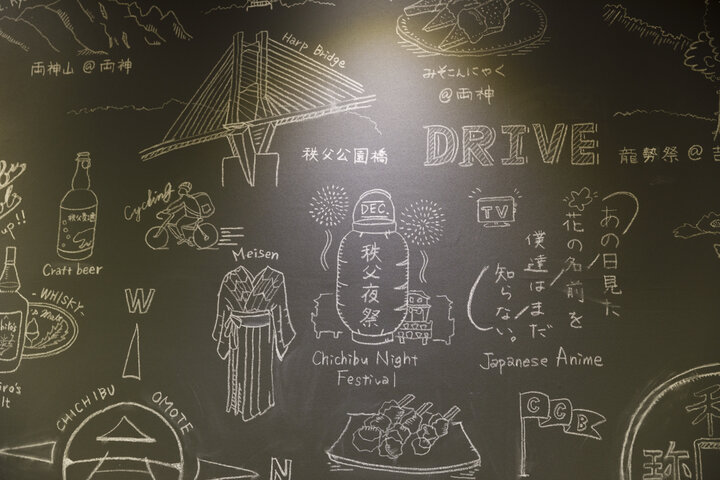 両神山@両神
Harp Bridge
秩父公園橋
みそこんにゃく
@両神
DRIVE
龍勢祭@吉
up!!
秩父麦酒
Craft beer
Cycling
Meisen
DEC.
秩父夜祭
Chichibu Night
Festival
TV
あの日見た
花の名前を
僕達はまだ
知らない。
Japanese Anime
WHISKY
Malt
iro's
lt
W
CHICHIBU OMOTE
N
CCB